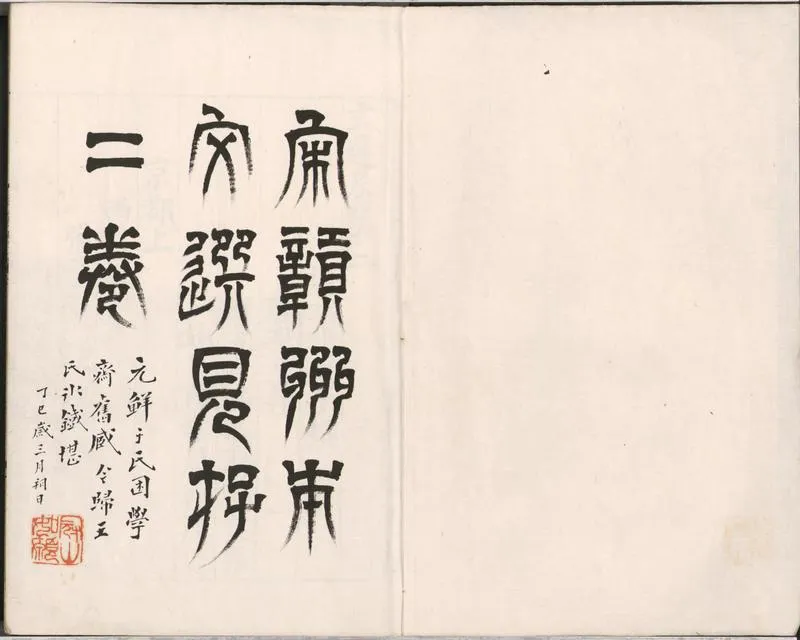 宋贛州本
文選見存
二卷
元鮮于氏困學
齋舊臧今歸王
氏冰鐵堪
丁巳歲三月朔日